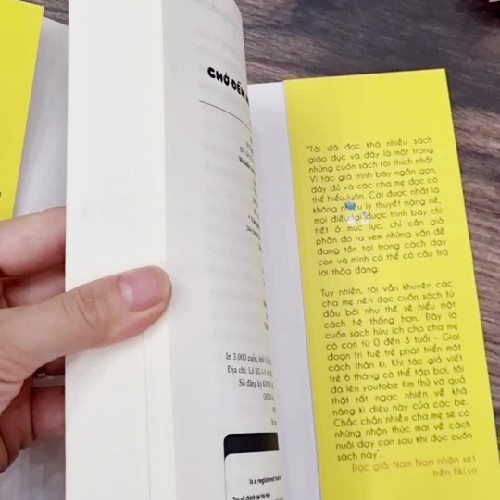 CHỜ ĐẾN
In 3.000 cuốn, khổ
Địa chỉ: Lô
Số đăng ký
Is a registered
"Tôi đã đọc khá nhiều sách
giáo dục và đây là một trong
những cuốn sách tôi thích nhất.
Vì tác giả trình bày ngắn gọn,
đầy đủ và các cha mẹ đọc có
thể hiểu luôn. Cái được nhất là
không nhiều lý thuyết nặng nề,
mọi điều lại được trình bày chi
tiết ở mục lục, chỉ cần giở
phần đó ra xem những vấn đề
đang tồn tại trong cách dạy
con và mình có thể có câu trả
lời thỏa đáng.
Tuy nhiên, tôi vẫn khuyên các
cha mẹ nên đọc cuốn sách từ
đầu bởi như thế sẽ hiểu một
cách hệ thống hơn. Đây là
cuốn sách hữu ích cho cha mẹ
có con từ 0 đến 3 tuổi - Giai
đoạn trí tuệ trẻ phát triển một
cách thần kì. Khi tác giả viết
trẻ 6 tháng có thể tập bơi, tôi
đã lên youtube tìm thử và quả
thật rất ngạc nhiên về khả
năng kì diệu này của các bé.
Chắc chắn nhiều cha mẹ sẽ có
những nhận thức mới về cách
nuôi dạy con sau khi đọc cuốn
sách này".
Độc giả: Nam Nam nhận xét
trên tiki.vn